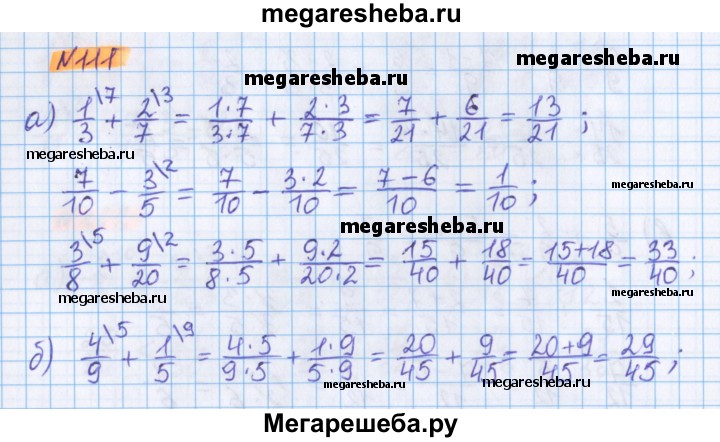 megaresheba.ru
№111
megaresheba.ru megaresheba.ru
а) 1/3\7 + 2/7\3 = 1·7/3·7 + 2·3/7·3 = 7/21 + 6/21 = 13/21 ;
megaresheba.ru
7/10 − 3/5\2 = 7/10 − 3·2/10 = 7−6/10 = 1/10 ;
megaresheba.ru
megaresheba.ru
3/8\5 + 9/20\2 = 3·5/8·5 + 9·2/20·2 = 15/40 + 18/40 = 15+18/40 = 33/40 ;
megaresheba.ru
megaresheba.ru
б) 4/9\5 + 1/5\9 = 4·5/9·5 + 1·9/5·9 = 20/45 + 9/45 = 20+9/45 = 29/45 ;
megaresheba.ru megaresheba.ru
Мегарешеба.ру